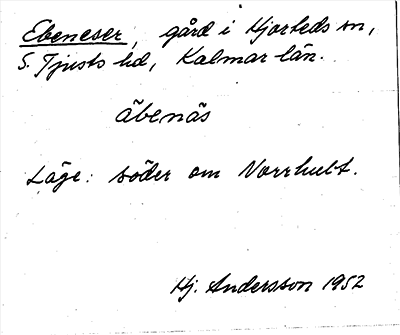 Ebeneser, gård i Hjorteds sn,
S. Tjusts hd, Kalmar län.
äbenäs
Läge: söder om Norrhult.
Hj. Andersson 1952